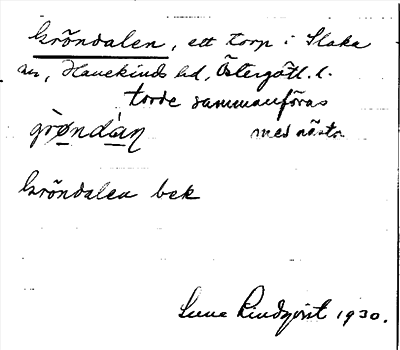 Gröndalen, ett torp i Slaka
sn, Hanekinds hd, Östergötl. l.
torde sammanföras
med nästa
grøndàn
Gröndalen bek
Sune Lindqvist 1930.